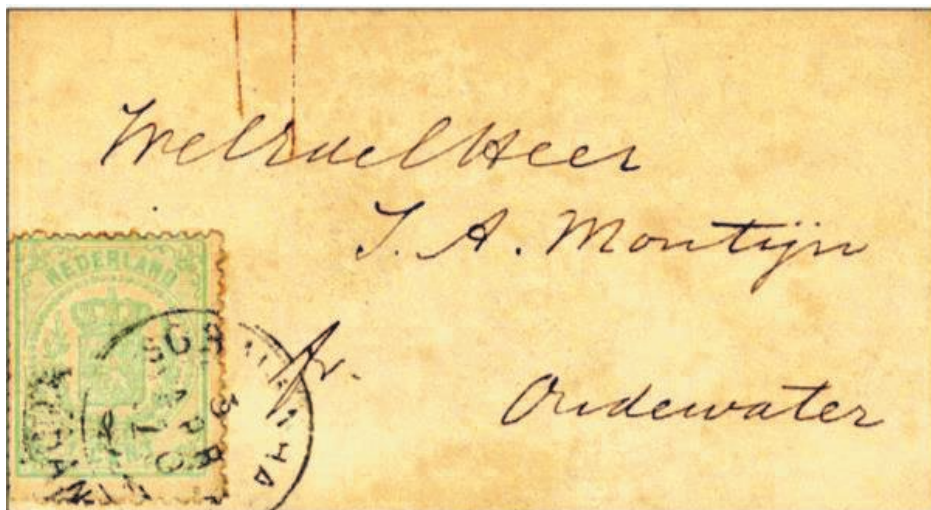 WelEdelHeer
J. A. Montijn
fr.
Oudewater
NEDERLAND